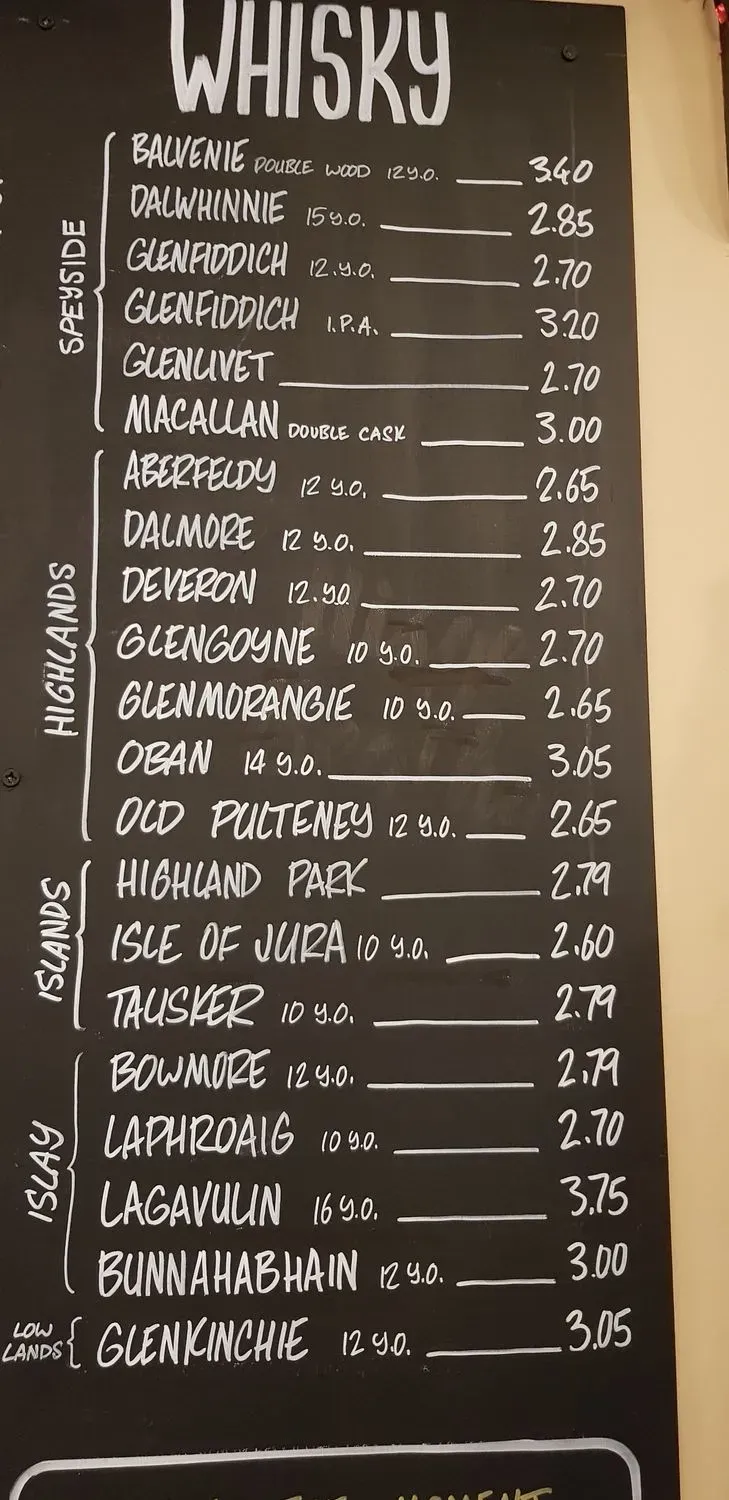 WHISKY
SPEYSIDE
BALVENIE DOUBLE WOOD 12 Y.O. 3.40
DALWHINNIE 15 Y.O. 2.85
GLENFIDDICH 12.Y.O. 2.70
GLENFIDDICH I.P.A. 3.20
GLENLIVET 2.70
MACALLAN DOUBLE CASK 3.00
HIGHLANDS
ABERFELDY 12 Y.O. 2.65
DALMORE 12 Y.O. 2.85
DEVERON 12.Y.O 2.70
GLENGOYNE 10 Y.O. 2.70
GLENMORANGIE 10 Y.O. 2.65
OBAN 14 Y.O. 3.05
OLD PULTENEY 12 Y.O. 2.65
ISLANDS
HIGHLAND PARK 2.79
ISLE OF JURA 10 Y.O. 2.60
TALISKER 10 Y.O. 2.79
ISLAY
BOWMORE 12 Y.O. 2.79
LAPHROAIG 10 Y.O. 2.70
LAGAVULIN 16 Y.O. 3.75
BUNNAHABHAIN 12 Y.O. 3.00
LOW
LANDS
GLENKINCHIE 12 Y.O. 3.05
MOMENT